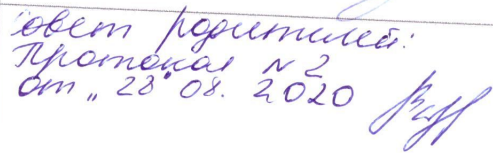 овет родителей:
Протокол N 2
от „28" 08. 2020